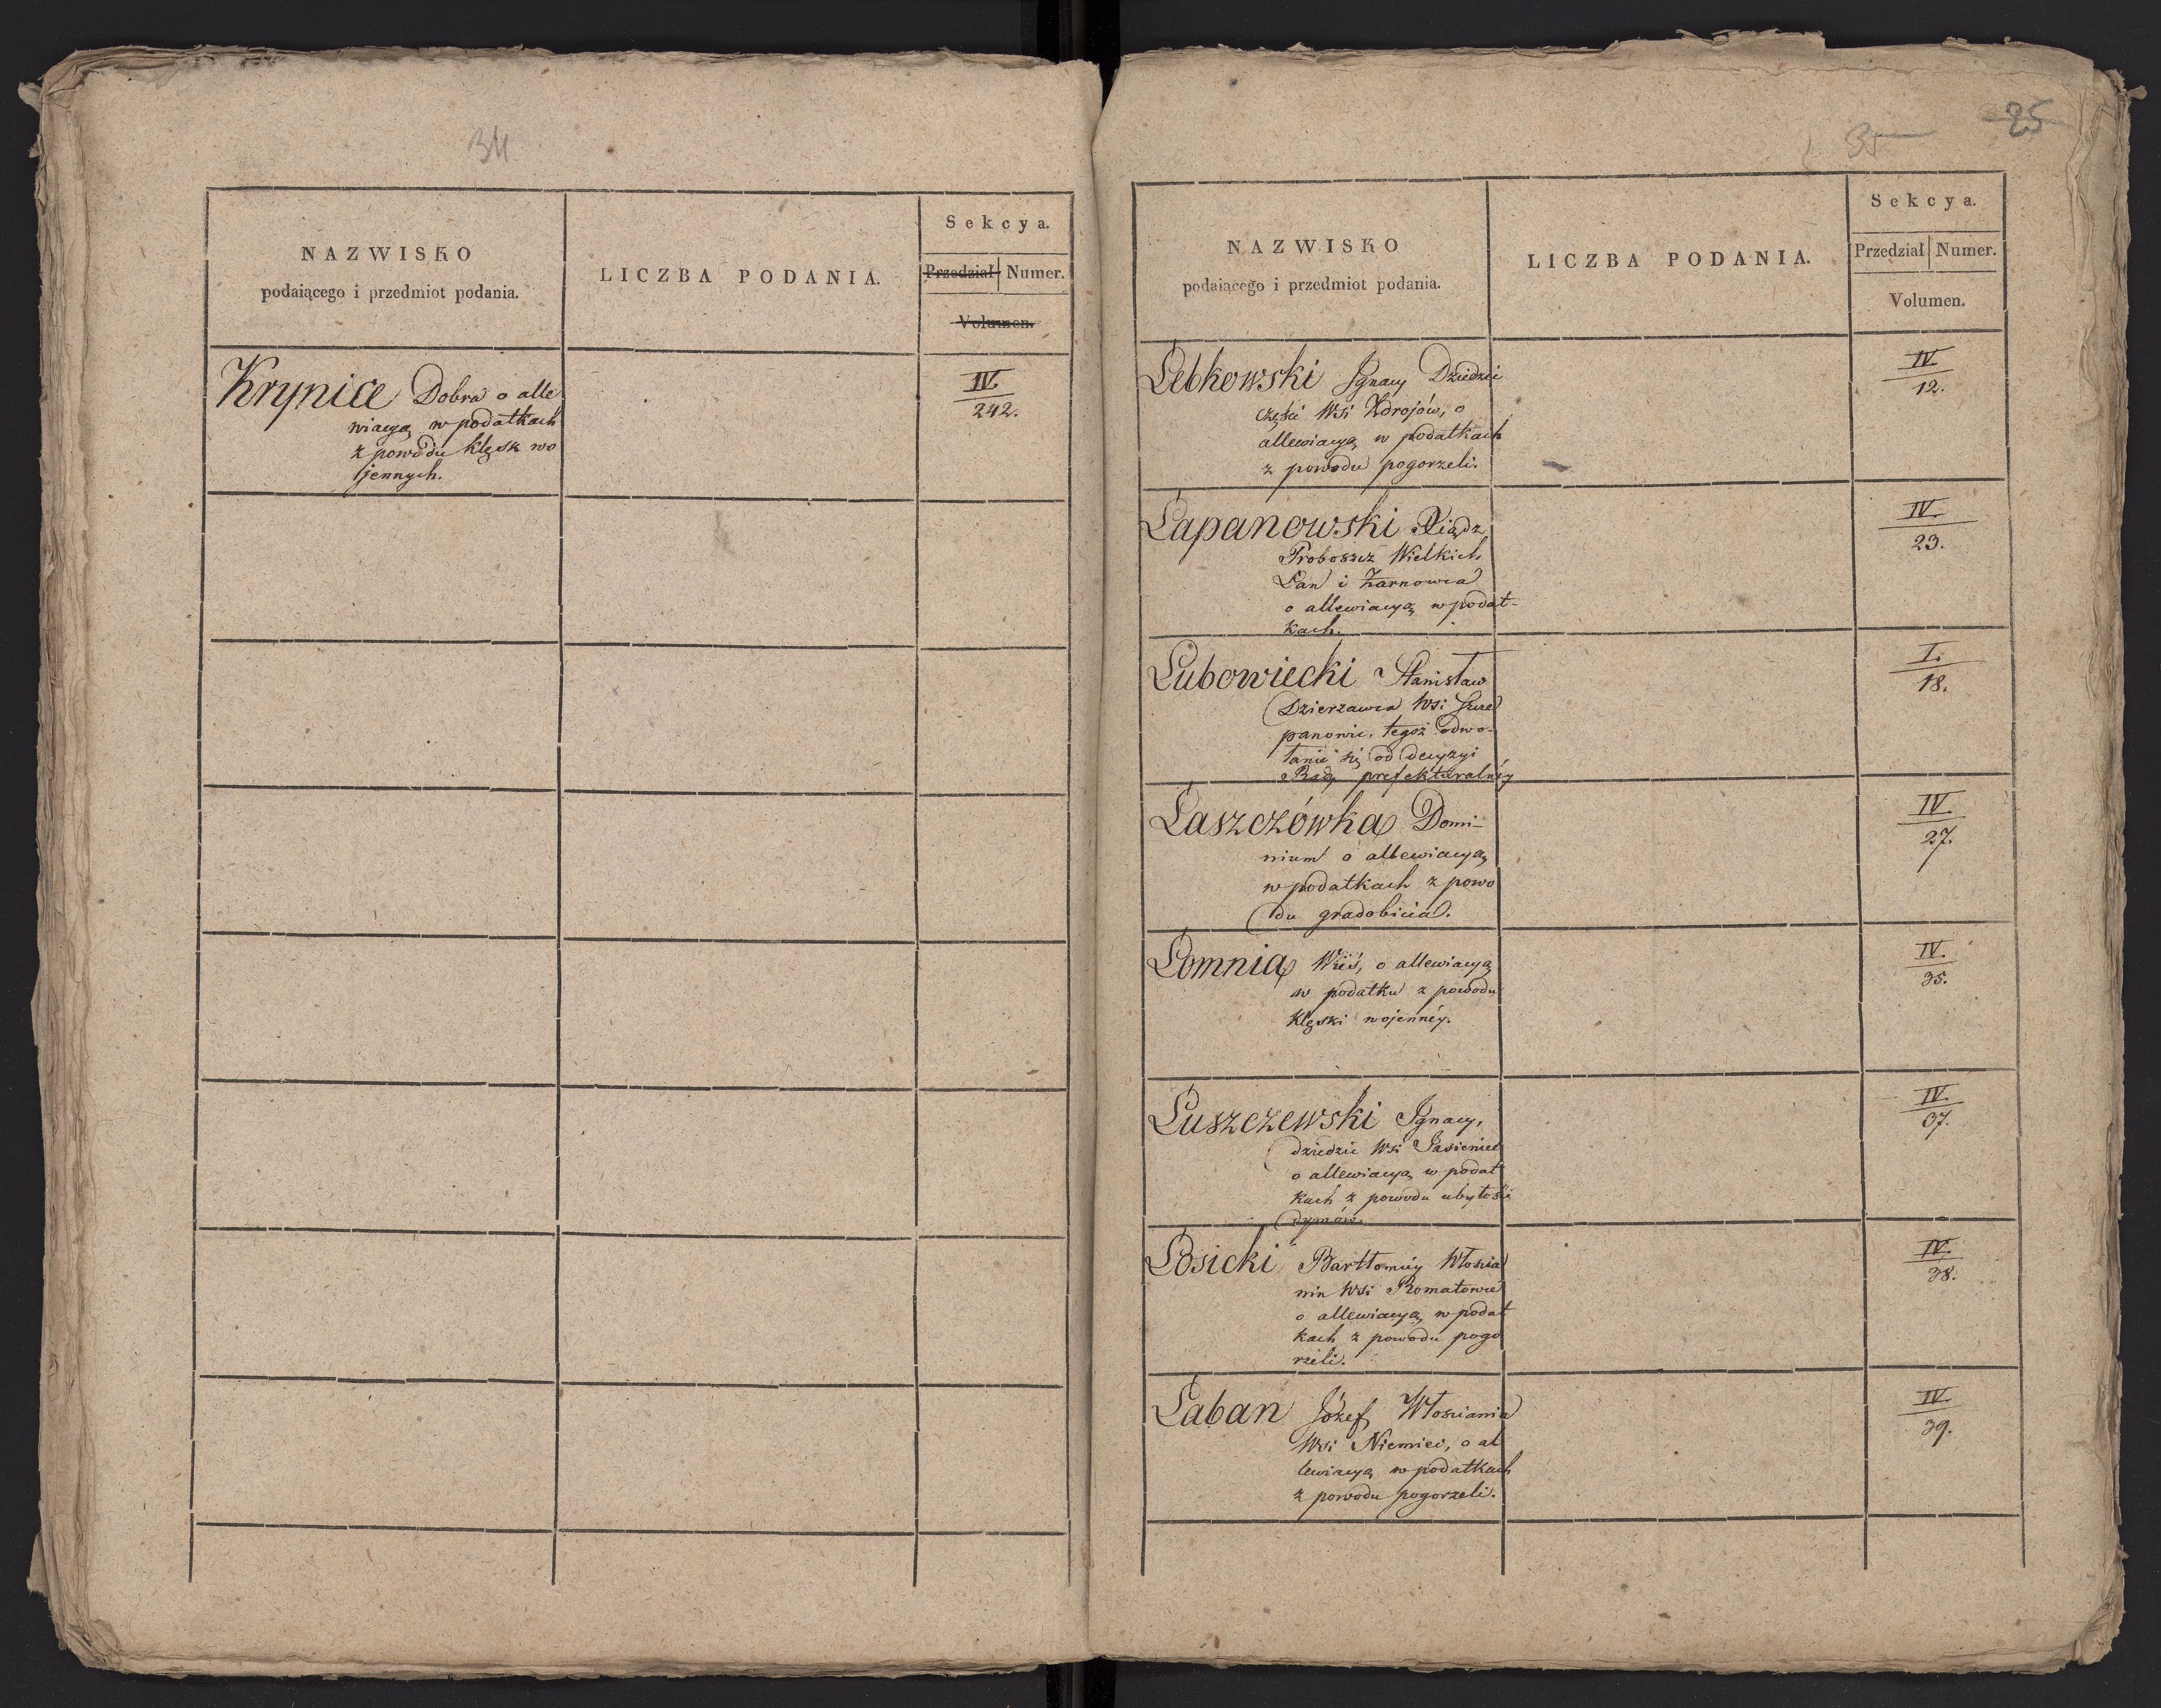 34
NAZWISKO
podaiącego i przedmiot podania.
LICZBA PODANIA.
Sekcya.
Przedział Numer.
Volumen.
Krynice Dobra o alle
wiacyą w podatkach
z powodu klęsk wo
jennych.
IV.
242.
35
25
NAZWISKO
podaiącego i przedmiot podania.
LICZBA PODANIA.
Sekcya.
Przedział Numer.
Volumen.
Łebkowski Ignacy Dziedzic
części Wsi Zdrojów, o
allewiacyą w podatkach
z powodu pogorzeli.
IV.
12.
Łapanowski Xiądz
Proboszcz Wielkich
Łan i Żarnowca
o allewiacyą w podat-
kach.
IV.
23.
Łubowiecki Stanisław
Dzierzawca Wsi
panowic, tegoż odwo-
łanie się od decyzyi
Rady prefekturalnéy
I.
18.
Łaszczówka Domi-
nium o allewiacyą
w podatkach z powo
du gradobicia.
IV.
27.
Łomnia Wieś, o allewiacyą
w podatku z powodu
klęski wojennéy.
IV.
35.
Łuszczewski Ignacy,
dziedzic Wsi Jasieniec
o allewiacyą w podat
kach z powodu ubyłości
dymów.
IV.
37.
Łosicki Bartłomiéy Włościa
nin Wsi Romatowce
o allewiacyą w podat
kach z powodu pogo
rzeli.
IV.
38.
Łaban Józef Włościania
Wsi Niemiec, o al
lewiacyą w podatkach
z powodu pogorzeli.
IV.
39.